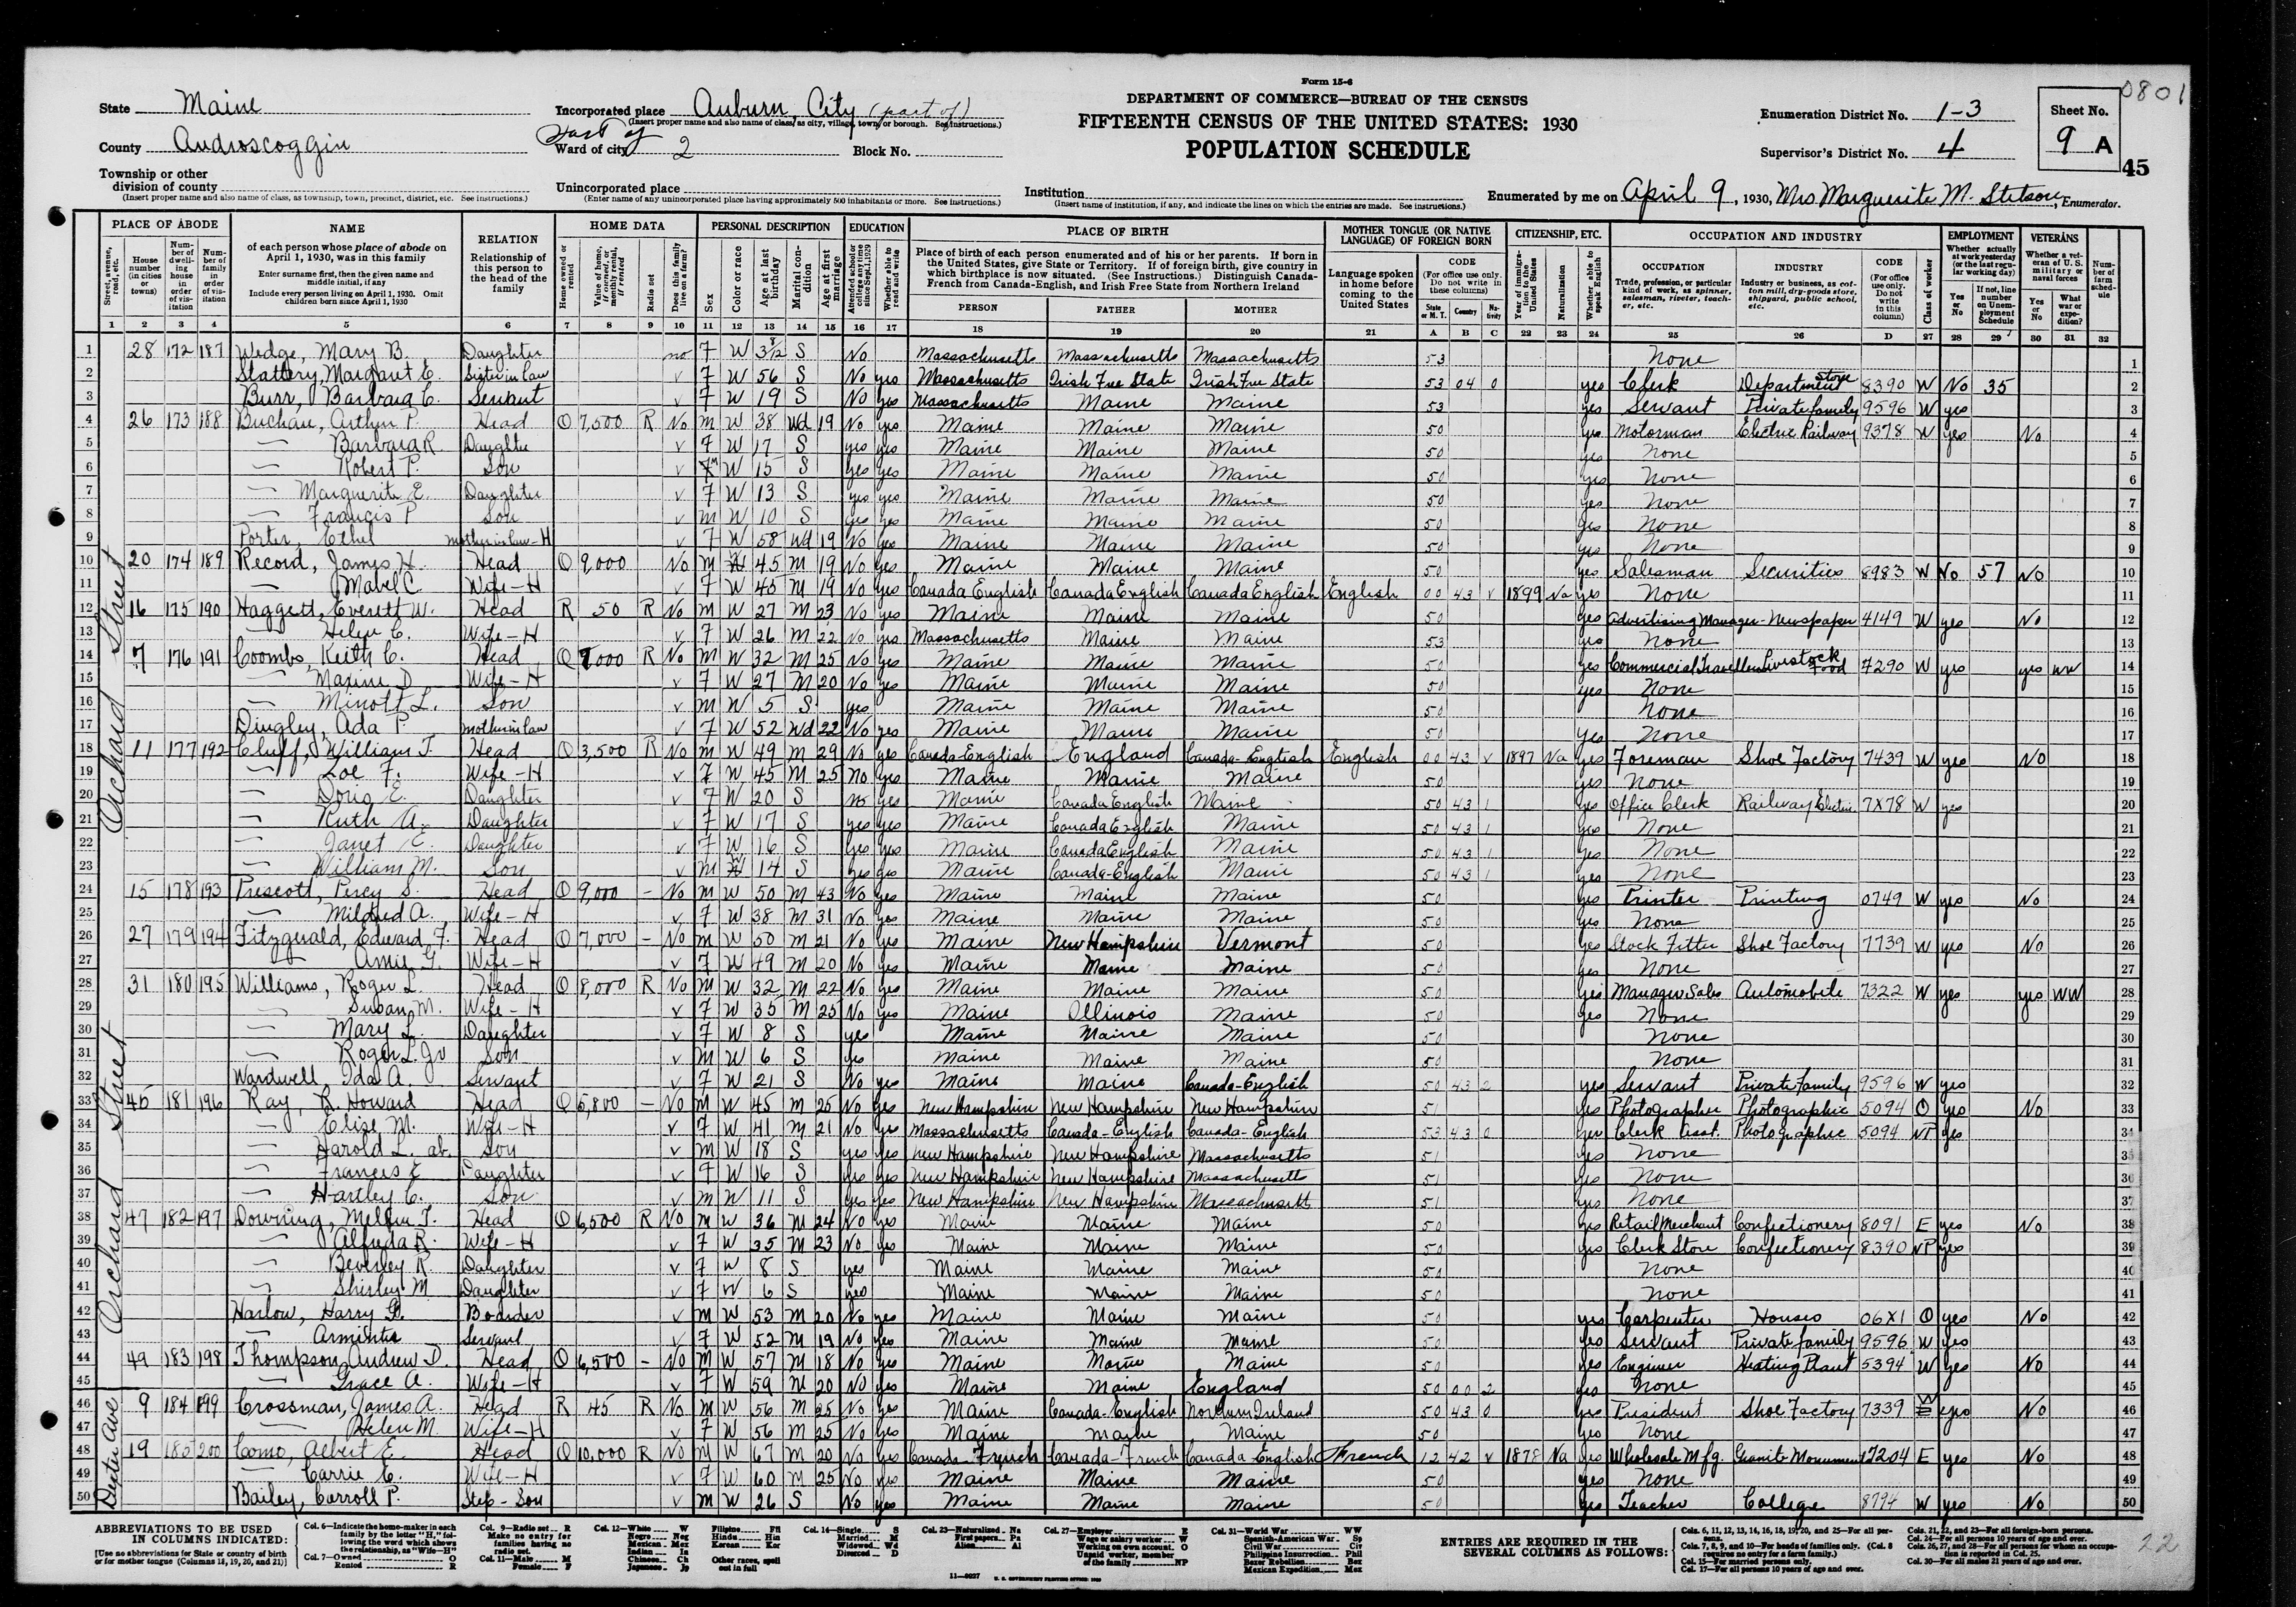 0801
Form 15-6
State Maine
Incorporated place Auburn, City (part of)
(Insert proper name and also name of class, as city, village, town, or borough. See instructions.)
DEPARTMENT OF COMMERCE—BUREAU OF THE CENSUS
FIFTEENTH CENSUS OF THE UNITED STATES: 1930
POPULATION SCHEDULE
Enumeration District No. 1-3
Sheet No.
9 A
45
County Androscoggin
Part of
Ward of city 2 Block No.
Supervisor's District No. 4
Township or other
division of county
(Insert proper name and also name of class, as township, town, precinct, district, etc. See instructions.)
Unincorporated place
(Enter name of any unincorporated place having approximately 500 inhabitants or more. See instructions.)
Institution
(Insert name of institution, if any, and indicate the lines on which the entries are made. See instructions.)
Enumerated by me on April 9, 1930, Mrs Marguerite M. Stetson, Enumerator.
PLACE OF ABODE NAME RELATION HOME DATA PERSONAL DESCRIPTION EDUCATION PLACE OF BIRTH MOTHER TONGUE (OR NATIVE LANGUAGE) OF FOREIGN BORN CITIZENSHIP, ETC. OCCUPATION AND INDUSTRY EMPLOYMENT VETERANS
1 2 3 4 5 6 7 8 9 10 11 12 13 14 15 16 17 18 19 20 21 A B C 22 23 24 25 26 D 27 28 29 30 31 32
Orchard Street
1 28 172 187 Wedge, Mary B. Daughter no F W 3 8/12 S No Massachusetts Massachusetts Massachusetts 53 None 1
2 Slattery, Margaret E. Sister in law F W 56 S No yes Massachusetts Irish Free State Irish Free State 53 04 0 yes Clerk Department Store 8390 W No 35 2
3 Burr, Barbara C. Servant F W 19 S No yes Massachusetts Maine Maine 53 yes Servant Private family 9596 W yes 3
4 26 173 188 Buchan, Arthur P. Head O 7,500 R No M W 38 Wd 19 No yes Maine Maine Maine 50 yes Motorman Electric Railway 9378 W yes No 4
5 — Barbara R. Daughter F W 17 S yes yes Maine Maine Maine 50 yes None 5
6 — Robert P. Son M W 15 S yes yes Maine Maine Maine 50 yes None 6
7 — Marguerite E. Daughter F W 13 S yes yes Maine Maine Maine 50 yes None 7
8 — Francis P Son M W 10 S yes yes Maine Maine Maine 50 yes None 8
9 Porter, Ethel mother in law-H F W 58 Wd 19 No yes Maine Maine Maine 50 yes None 9
10 20 174 189 Record, James H. Head O 9,000 No M W 45 M 19 No yes Maine Maine Maine 50 yes Salesman Securities 8983 W No 57 No 10
11 — Mabel C Wife-H F W 45 M 19 No yes Canada English Canada English Canada English English 00 43 V 1899 Na yes None 11
12 16 175 190 Haggett, Everett W. Head R 50 R No M W 27 M 23 No yes Maine Maine Maine 50 yes Advertising Manager-Newspaper 4149 W yes No 12
13 — Helen C. Wife-H F W 26 M 22 No yes Massachusetts Maine Maine 53 yes None 13
14 7 176 191 Coombs, Keith C. Head O 9,000 R No M W 32 M 25 No yes Maine Maine Maine 50 yes Commercial Traveller Livestock Food 7290 W yes yes WW 14
15 — Maxine D Wife-H F W 27 M 20 No yes Maine Maine Maine 50 yes None 15
16 — Minott L. Son M W 5 S yes Maine Maine Maine 50 None 16
17 Dingley, Ada P. mother in law F W 52 Wd 22 No yes Maine Maine Maine 50 yes None 17
18 11 177 192 Cluff, William T. Head O 3,500 R No M W 49 M 29 No yes Canada-English England Canada-English English 00 43 V 1897 Na yes Foreman Shoe Factory 7439 W yes No 18
19 — Zoe F. Wife-H F W 45 M 25 No yes Maine Maine Maine 50 yes None 19
20 — Doris E. Daughter F W 20 S no yes Maine Canada English Maine 50 43 1 yes Office Clerk Railway Electric 7X78 W yes 20
21 — Ruth A. Daughter F W 17 S yes yes Maine Canada English Maine 50 43 1 yes None 21
22 — Janet E. Daughter F W 16 S yes yes Maine Canada English Maine 50 43 1 yes None 22
23 — William M. Son M W 14 S yes yes Maine Canada-English Maine 50 43 1 yes None 23
24 15 178 193 Prescott, Percy S. Head O 9,000 - No M W 50 M 43 No yes Maine Maine Maine 50 yes Printer Printing 0749 W yes No 24
25 — Mildred A. Wife-H F W 38 M 31 No yes Maine Maine Maine 50 yes None 25
26 27 179 194 Fitzgerald, Edward F. Head O 7,000 - No M W 50 M 21 No yes Maine New Hampshire Vermont 50 yes Stock Fitter Shoe Factory 7739 W yes No 26
27 Amie G. Wife-H F W 49 M 20 No yes Maine Maine Maine 50 yes None 27
28 31 180 195 Williams, Roger L. Head O 8,000 R No M W 32 M 22 No yes Maine Maine Maine 50 yes Manager Sales Automobile 7322 W yes yes WW 28
29 — Susan M. Wife-H F W 35 M 25 No yes Maine Illinois Maine 50 yes None 29
30 — Mary L. Daughter F W 8 S yes Maine Maine Maine 50 None 30
31 — Roger L. Jr Son M W 6 S yes Maine Maine Maine 50 None 31
32 Wardwell Ida A. Servant F W 21 S No yes Maine Maine Canada-English 50 43 2 yes Servant Private Family 9596 W yes 32
33 45 181 196 Ray, R. Howard Head O 5,800 - No M W 45 M 25 No yes New Hampshire New Hampshire New Hampshire 51 yes Photographer Photographic 5094 O yes No 33
34 — Elise M. Wife-H F W 41 M 21 No yes Massachusetts Canada-English Canada-English 53 43 0 yes Clerk Asst. Photographic 5094 NP yes 34
35 — Harold L. ab. Son M W 18 S yes yes New Hampshire New Hampshire Massachusetts 51 yes None 35
36 — Frances E Daughter F W 16 S yes yes New Hampshire New Hampshire Massachusetts 51 yes None 36
37 — Hartley C. Son M W 11 S yes yes New Hampshire New Hampshire Massachusetts 51 yes None 37
38 47 182 197 Downing, Melvin T. Head O 6,500 R No M W 36 M 24 No yes Maine Maine Maine 50 yes Retail Merchant Confectionery 8091 E yes No 38
39 — Alfreda R. Wife-H F W 35 M 23 No yes Maine Maine Maine 50 yes Clerk Store Confectionery 8390 NP yes 39
40 — Beverley R Daughter F W 8 S yes Maine Maine Maine 50 None 40
41 — Shirley M Daughter F W 6 S yes Maine Maine Maine 50 None 41
42 Harlow, Harry G. Boarder M W 53 M 20 No yes Maine Maine Maine 50 yes Carpenter Houses 06X1 O yes No 42
43 — Armintie Servant F W 52 M 19 No yes Maine Maine Maine 50 yes Servant Private family 9596 W yes 43
44 49 183 198 Thompson, Andrew D. Head O 6,500 - No M W 57 M 18 No yes Maine Maine Maine 50 yes Engineer Heating Plant 5394 W yes No 44
45 — Grace A. Wife-H F W 59 M 20 No yes Maine Maine England 50 00 2 yes None 45
46 9 184 199 Crossman, James A. Head R 45 R No M W 56 M 25 No yes Maine Canada-English Northern Ireland 50 43 0 yes President Shoe Factory 7339 W yes No 46
47 — Helen M. Wife-H F W 56 M 25 No yes Maine Maine Maine 50 yes None 47
48 19 185 200 Como, Albert E. Head O 10,000 R No M W 67 M 20 No yes Canada-French Canada-French Canada English French 12 42 V 1878 Na yes Wholesale Mfg. Granite Monument 7204 E yes No 48
49 — Carrie C. Wife-H F W 60 M 25 No yes Maine Maine Maine 50 yes None 49
50 Bailey, Carroll P. Step-Son M W 26 S No yes Maine Maine Maine 50 yes Teacher College 8794 W yes No 50
ABBREVIATIONS TO BE USED
IN COLUMNS INDICATED:
[Use no abbreviations for State or country of birth
or for mother tongue (Columns 18, 19, 20, and 21)]
ENTRIES ARE REQUIRED IN THE
SEVERAL COLUMNS AS FOLLOWS:
11—9927 U. S. GOVERNMENT PRINTING OFFICE: 1930
22